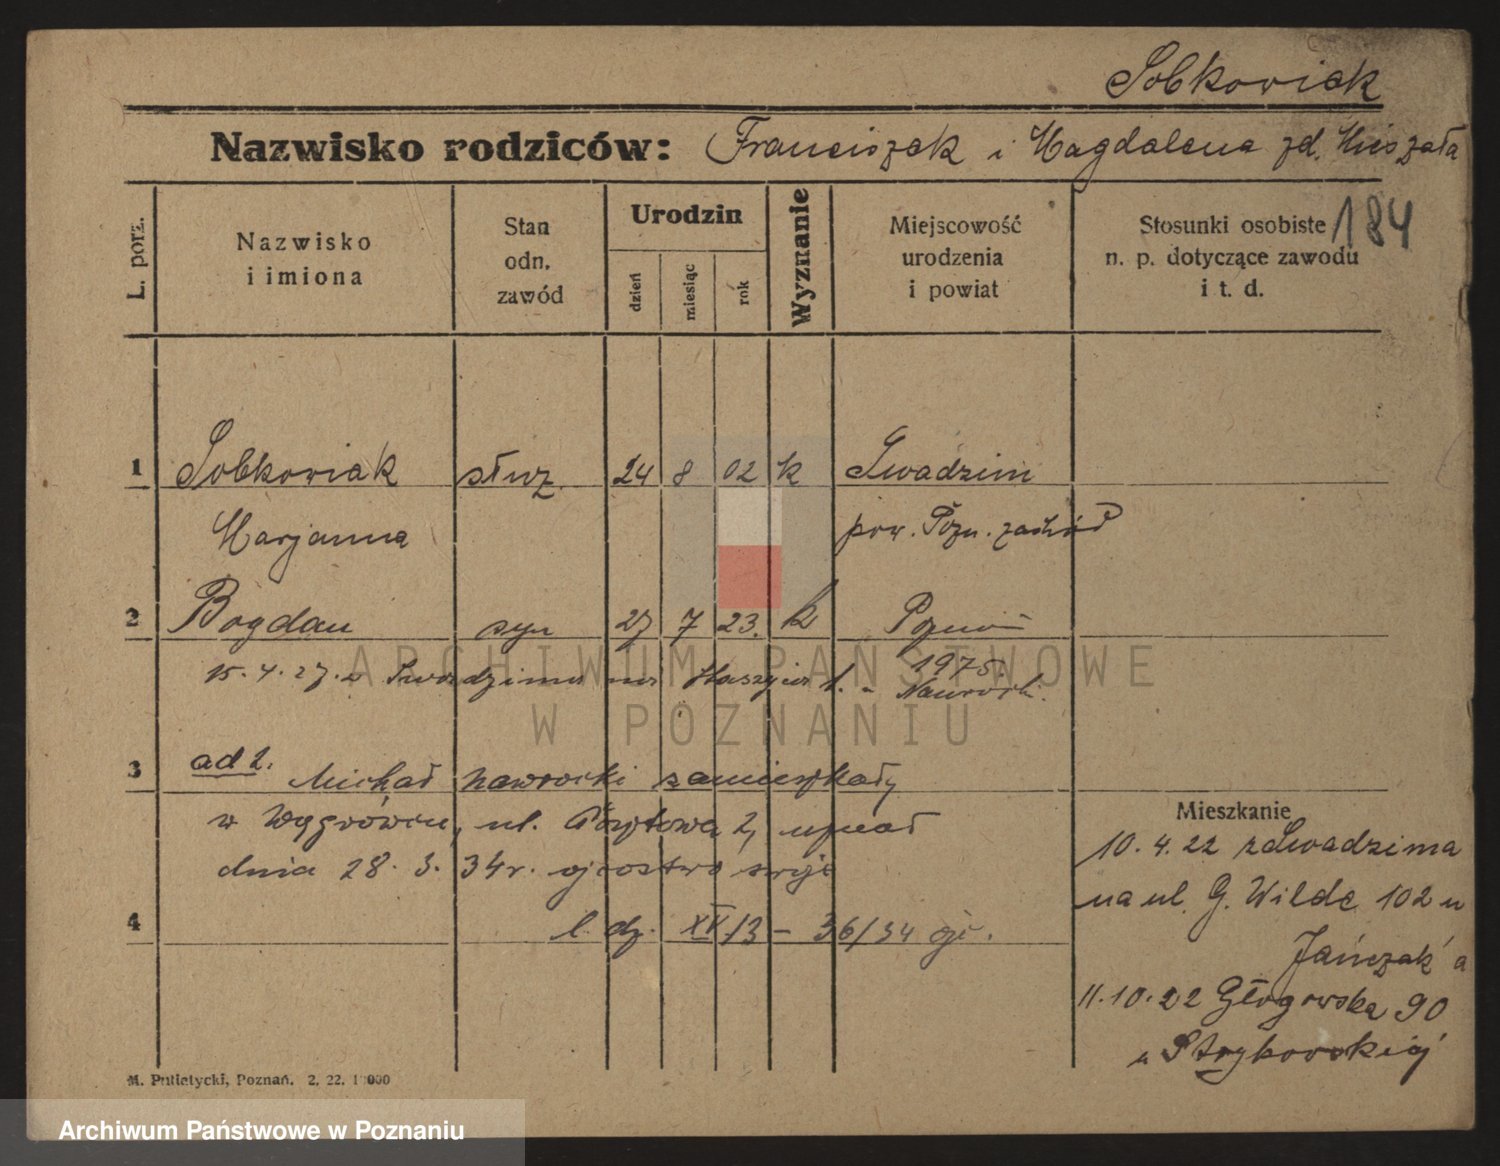 Sobkowiak
Nazwisko rodziców: Franciszek i Magdalena zd.
L. porz.
Nazwisko
i imiona
Stan
odn.
zawód
Urodzin
dzień
miesiąc
rok
Wyznanie
Miejscowość
urodzenia
i powiat
Stosunki osobiste
n. p. dotyczące zawodu
i t. d.
184
1 Sobkowiak służ. 24 8 02 k Swadzim
Marjanna pow. Pozn. zachód
2 Bogdan syn 27 7 23. k Poznań
15.4.27. w Swadzimu na
1975
3 ad 2. Michał Nawrocki zamieszkały
w Wągrówcu, ul. Pocztowa 2, uznał
dnia 28. 3. 34r. ojcostwo swoje
4 l. dz. XV/3 - 36/34
Mieszkanie
10.4.22 z Swadzima
na ul. G. Wilde 102 u
Jańczak'a
11.10.22 Głogowska 90
u Strykowskiej
M. Putiatycki, Poznań. 2. 22. 1 000
ARCHIWUM PAŃSTWOWE
W POZNANIU
Archiwum Państwowe w Poznaniu